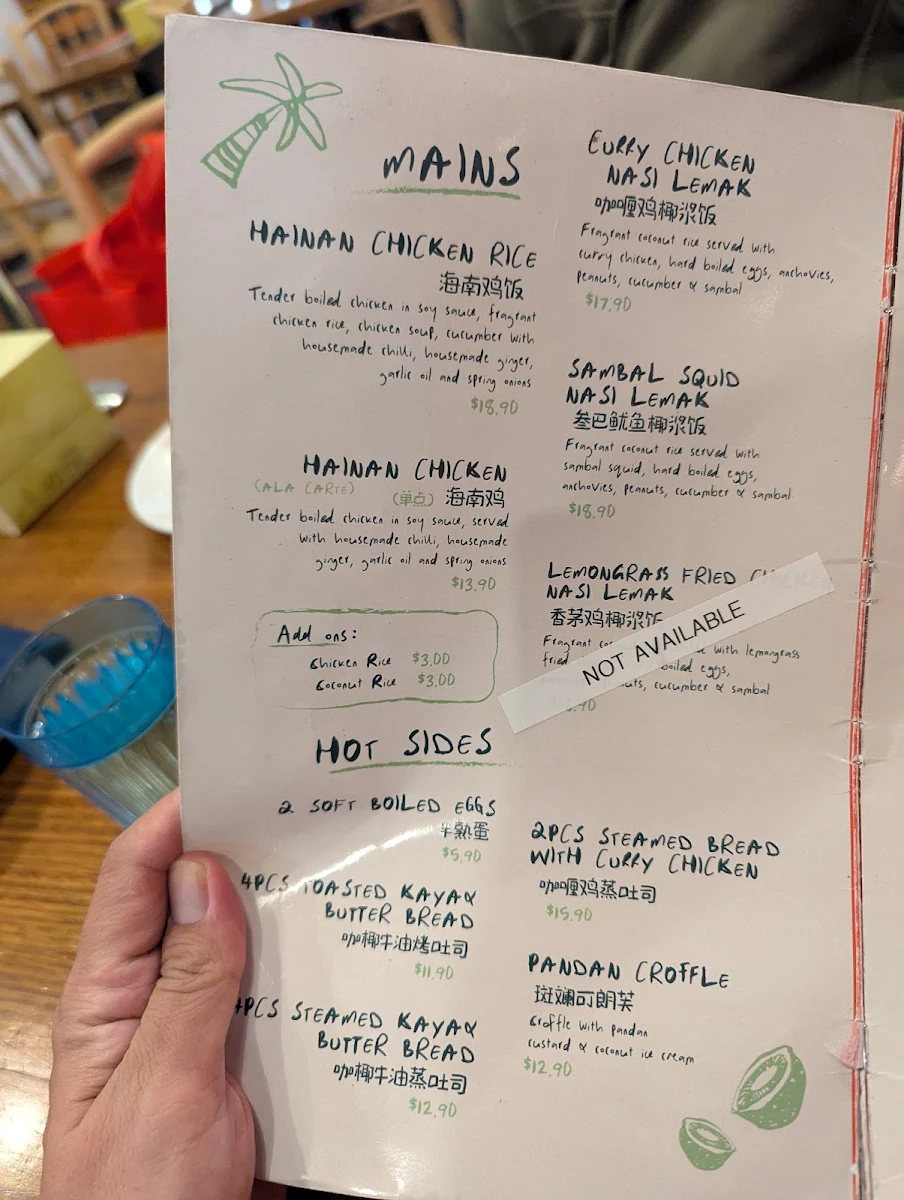 MAINS
HAINAN CHICKEN RICE
海南鸡饭
Tender boiled chicken in soy sauce, fragrant
chicken rice, chicken soup, cucumber with
housemade chilli, housemade ginger,
garlic oil and spring onions
$18.90
HAINAN CHICKEN
(ALA CARTE) (单点) 海南鸡
Tender boiled chicken in soy sauce, served
with housemade chilli, housemade
ginger, garlic oil and spring onions
$13.90
Add ons:
Chicken Rice $3.00
Coconut Rice $3.00
CURRY CHICKEN
NASI LEMAK
咖喱鸡椰浆饭
Fragrant coconut rice served with
curry chicken, hard boiled eggs, anchovies,
peanuts, cucumber & sambal
$17.90
SAMBAL SQUID
NASI LEMAK
叁巴鱿鱼椰浆饭
Fragrant coconut rice served with
sambal squid, hard boiled eggs,
anchovies, peanuts, cucumber & sambal
$18.90
LEMONGRASS FRIED CHICKEN
NASI LEMAK
香茅鸡椰浆饭
Fragrant with lemongrass
fried boiled eggs,
cucumber & sambal
NOT AVAILABLE
HOT SIDES
2 SOFT BOILED EGGS
半熟蛋
$5.90
4PCS TOASTED KAYA &
BUTTER BREAD
咖椰牛油烤吐司
$11.90
4PCS STEAMED KAYA &
BUTTER BREAD
咖椰牛油蒸吐司
$12.90
2PCS STEAMED BREAD
WITH CURRY CHICKEN
咖喱鸡蒸吐司
$15.90
PANDAN CROFFLE
斑斓可朗芙
Croffle with pandan
custard & coconut ice cream
$12.90